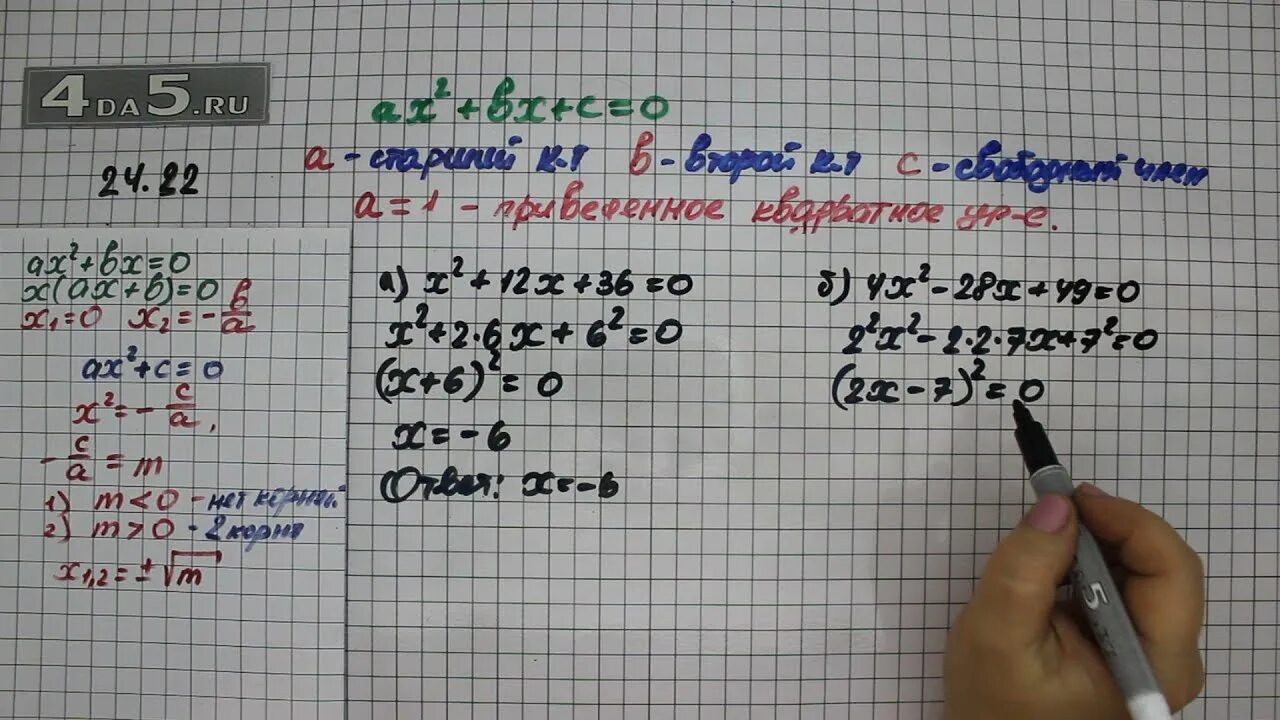 4DA5.RU
ax²+bx+c=0
a - старший к.т b - второй к.т c - свободный член
24.22
a=1 - приведенное квадратное ур-е.
ax²+bx=0
x(ax+b)=0
x₁=0 x₂=-b/a
ax²+c=0
x²=-c/a,
-c/a=m
1) m<0 - нет корней
2) m>0 - 2 корня
x₁,₂=±√m
а) x²+12x+36=0
x²+2·6x+6²=0
(x+6)²=0
x=-6
Ответ: x=-6
б) 4x²-28x+49=0
2²x²-2·2·7x+7²=0
(2x-7)²=0
5